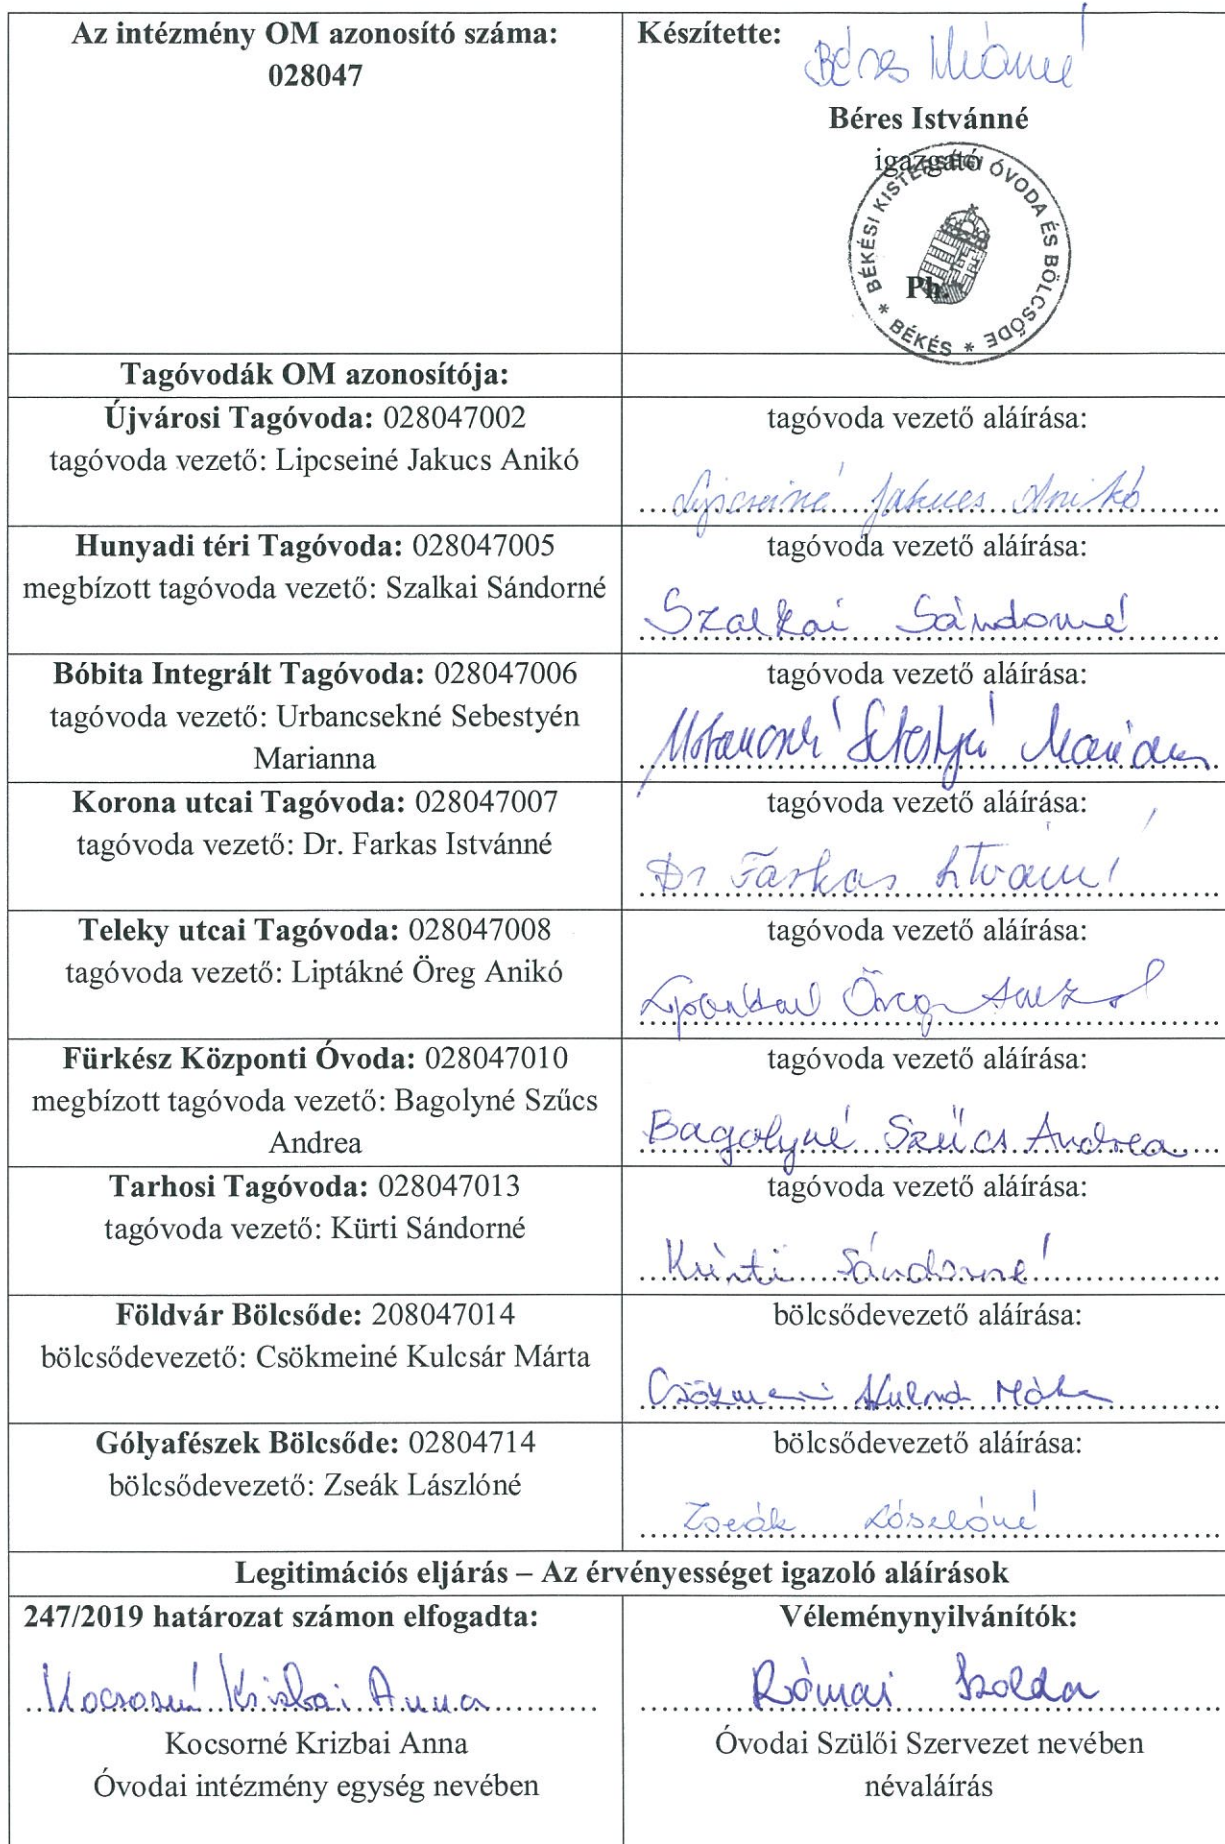 Az intézmény OM azonosító száma:
028047
Készítette:
Béres Istvánné
Béres Istvánné
igazgató
BÉKÉSI KISTÉRSÉGI ÓVODA ÉS BÖLCSŐDE * BÉKÉS *
Ph.
Tagóvodák OM azonosítója:
Újvárosi Tagóvoda: 028047002
tagóvoda vezető: Lipcseiné Jakucs Anikó
tagóvoda vezető aláírása:
Lipcseiné Jakucs Anikó
Hunyadi téri Tagóvoda: 028047005
megbízott tagóvoda vezető: Szalkai Sándorné
tagóvoda vezető aláírása:
Szalkai Sándorné
Bóbita Integrált Tagóvoda: 028047006
tagóvoda vezető: Urbancsekné Sebestyén
Marianna
tagóvoda vezető aláírása:
Korona utcai Tagóvoda: 028047007
tagóvoda vezető: Dr. Farkas Istvánné
tagóvoda vezető aláírása:
Dr Farkas Istvánné
Teleky utcai Tagóvoda: 028047008
tagóvoda vezető: Liptákné Öreg Anikó
tagóvoda vezető aláírása:
Öreg
Fürkész Központi Óvoda: 028047010
megbízott tagóvoda vezető: Bagolyné Szűcs
Andrea
tagóvoda vezető aláírása:
Bagolyné Szűcs Andrea
Tarhosi Tagóvoda: 028047013
tagóvoda vezető: Kürti Sándorné
tagóvoda vezető aláírása:
Kürti Sándorné
Földvár Bölcsőde: 208047014
bölcsődevezető: Csökmeiné Kulcsár Márta
bölcsődevezető aláírása:
Gólyafészek Bölcsőde: 02804714
bölcsődevezető: Zseák Lászlóné
bölcsődevezető aláírása:
Zseák Lászlóné
Legitimációs eljárás – Az érvényességet igazoló aláírások
247/2019 határozat számon elfogadta:
Kocsorné Krizbai Anna
Kocsorné Krizbai Anna
Óvodai intézmény egység nevében
Véleménynyilvánítók:
Római Izolda
Óvodai Szülői Szervezet nevében
névaláírás